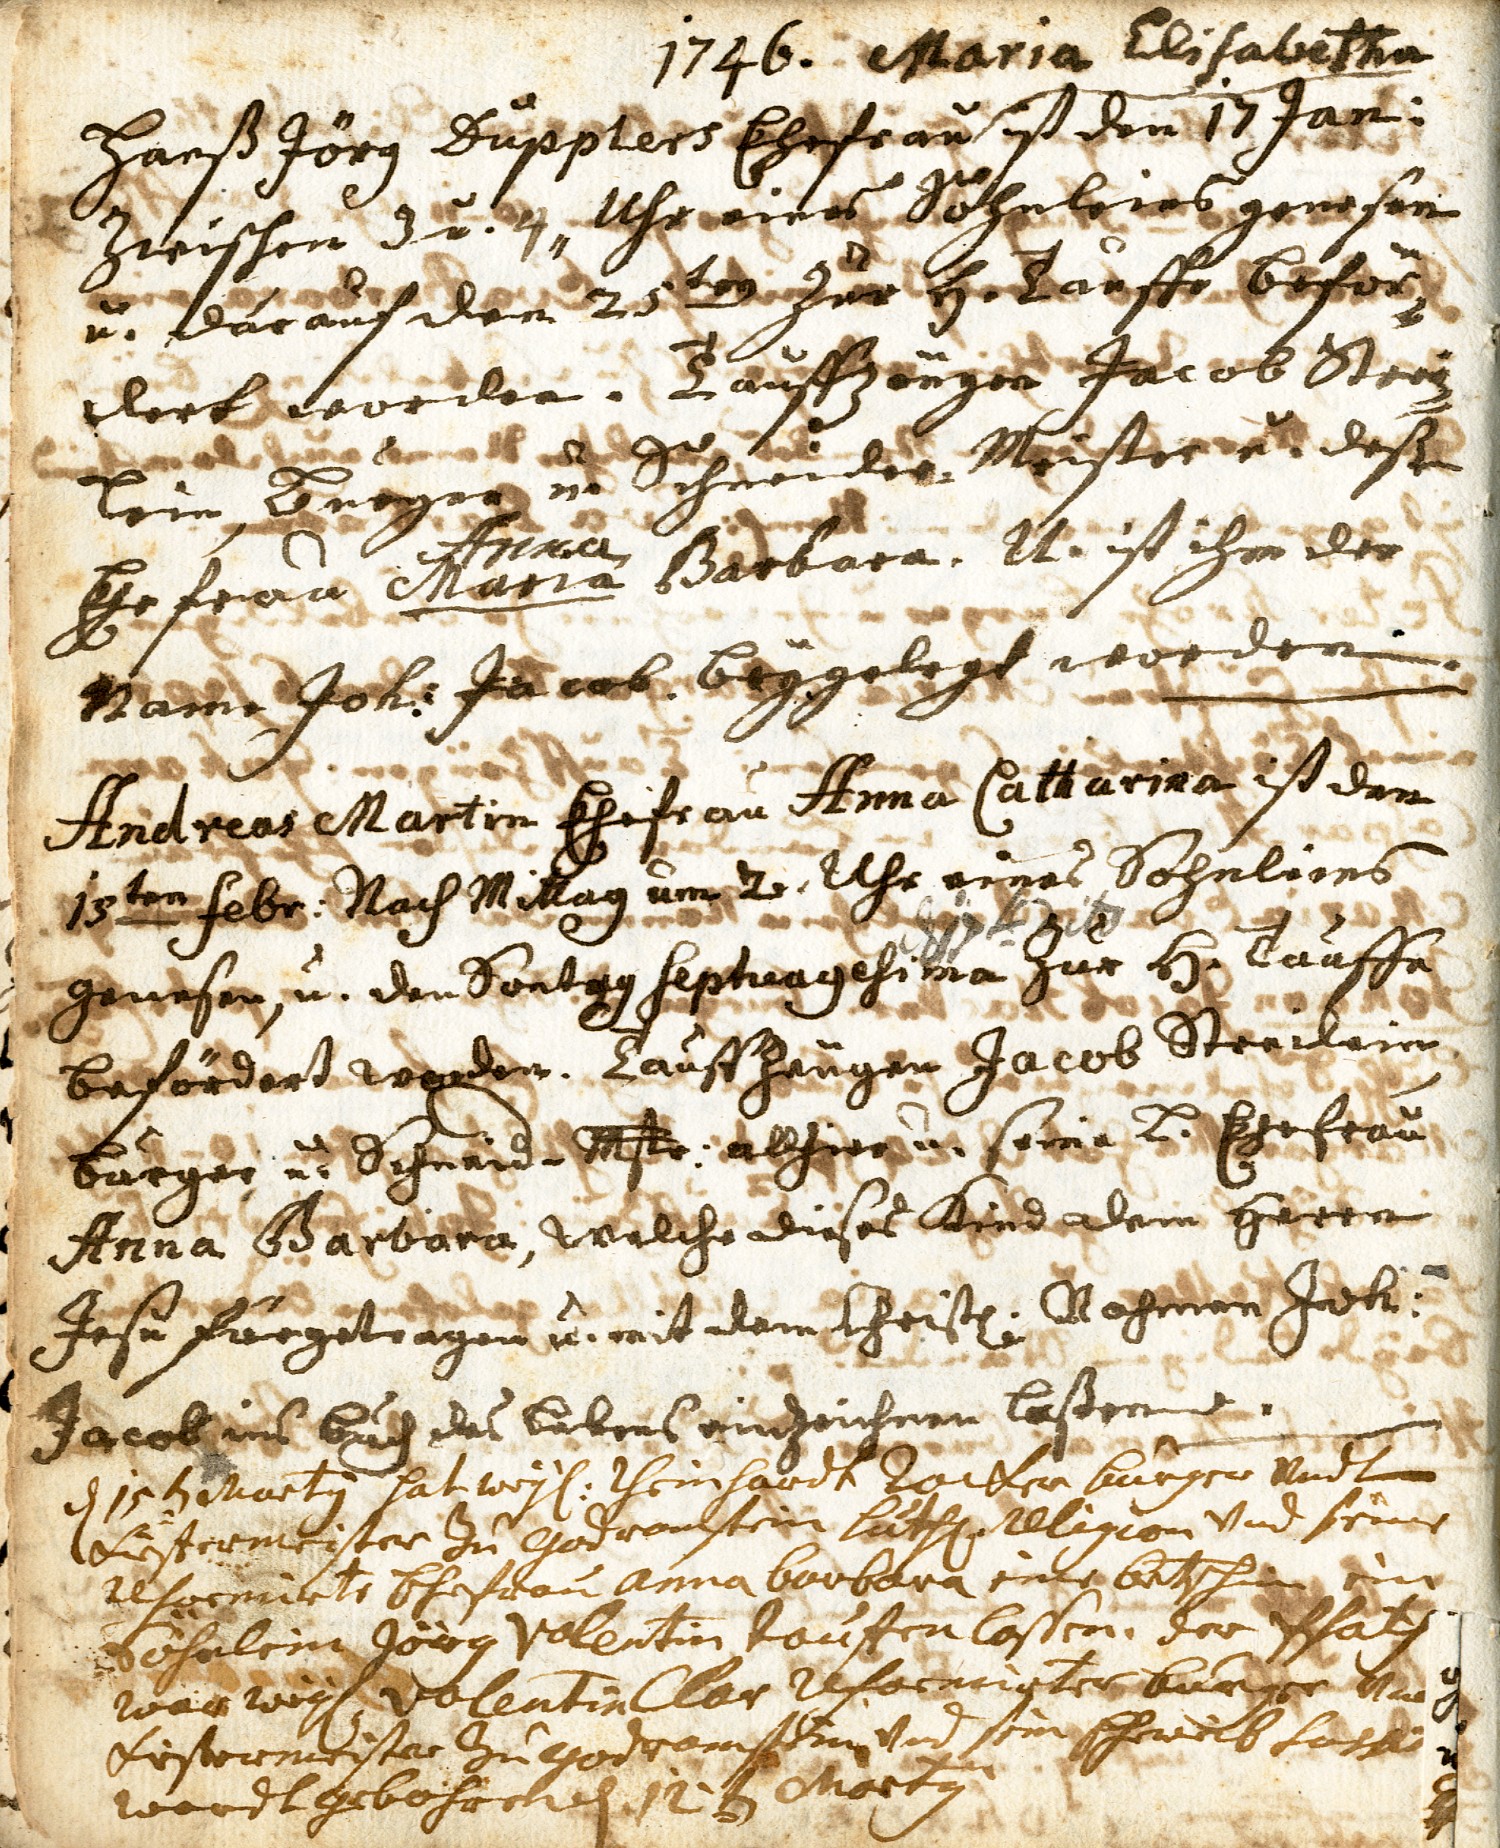 1746. Maria Elisabetha
Hanß Jörg Dupplers Ehefrau ist den 17 Jan:
Zwischen 3 u. 4 Uhr eines Söhnleins genesen
u. darauf den 25ten Zur H. Tauffe beför-
dert worden. Tauffzeugen Jacob Strei-
lein, Burger u. Schneider-Meister u. deßen
Ehefrau Maria Anna Barbara. U. ist ihm der
Name Joh: Jacob beygelegt worden.
Andreas Martin Ehefrau Anna Catharina ist den
15ten Febr: Nach Mittag um 2. Uhr eines Söhnleins
genesen, u. den Sontag Septuagesima Zur H. Tauffe
befördert worden. Tauffzeugen Jacob Streilein,
burger u. Schneid-Mstr: allhier u. seine L. Ehefrau
Anna Barbara, welche dieses Kind dem Herrn
Jesu fürgetragen u. mit dem Christl: Nahmen Joh:
Jacob ins buch des Lebens einzeichnen laßen.
d 15 Marty hat Reinhardt burger Undt
Küffermeister Zu Godramstein Luth. Religion Und seine
Reformirte Ehefrau Anna barbara eine ein
Söhnlein Jörg Valentin tauffen lassen. der Pfatt
war Valentin Clar Reformirter burger Und
Küffermeister Zu Godramstein Und sein Eheweib
wardt gebohren d. 12 Marty